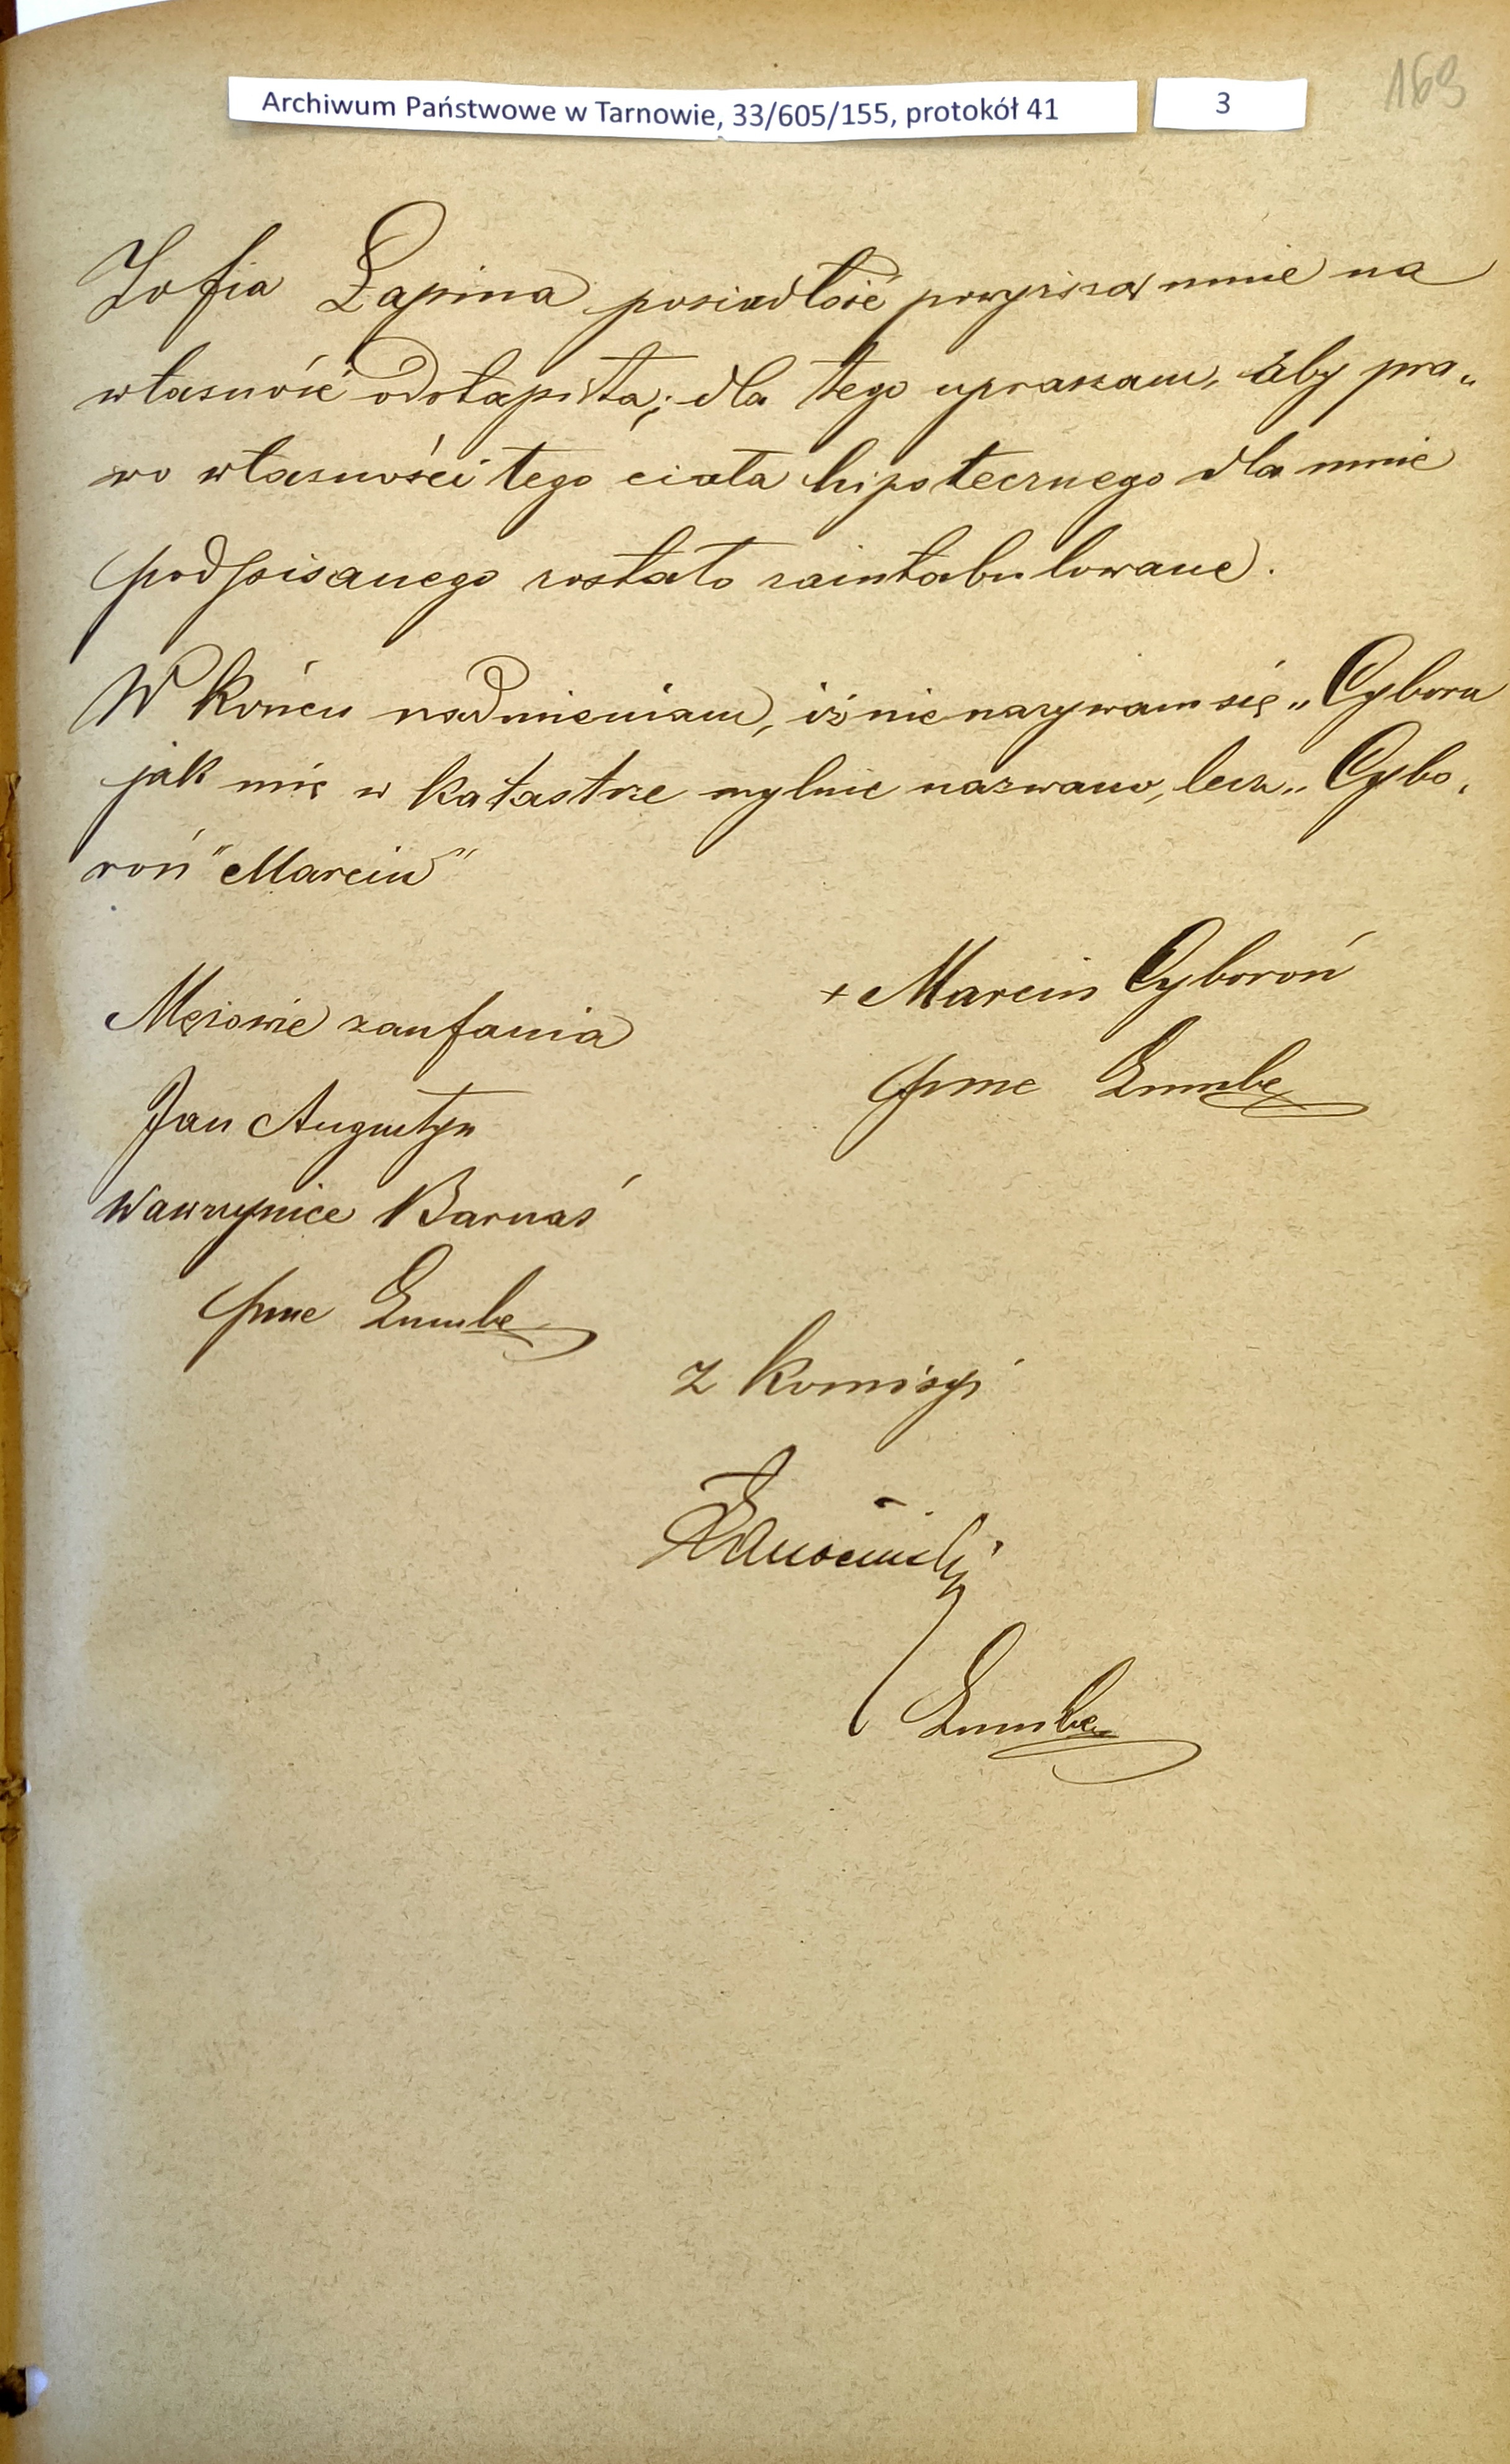 Archiwum Państwowe w Tarnowie, 33/605/155, protokół 41
3
169
Zofia Łapina posiadłość powyższą mnie na
własność odstąpiła; dla tego upraszam, aby pra„
wo własności tego ciała hipotecznego dla mnie
podpisanego zostało zaintabulowane.
W końcu nadmieniam, iż nie nazywam się „Cybora
jak mię w katastrze mylnie nazwano, lecz „Cybo„
roń" Marcin"
+ Marcin Cyboroń
Mężowie zaufania
prne
Jan Augustyn
Wawrzyniec Barnaś
prne
Z Komisyi